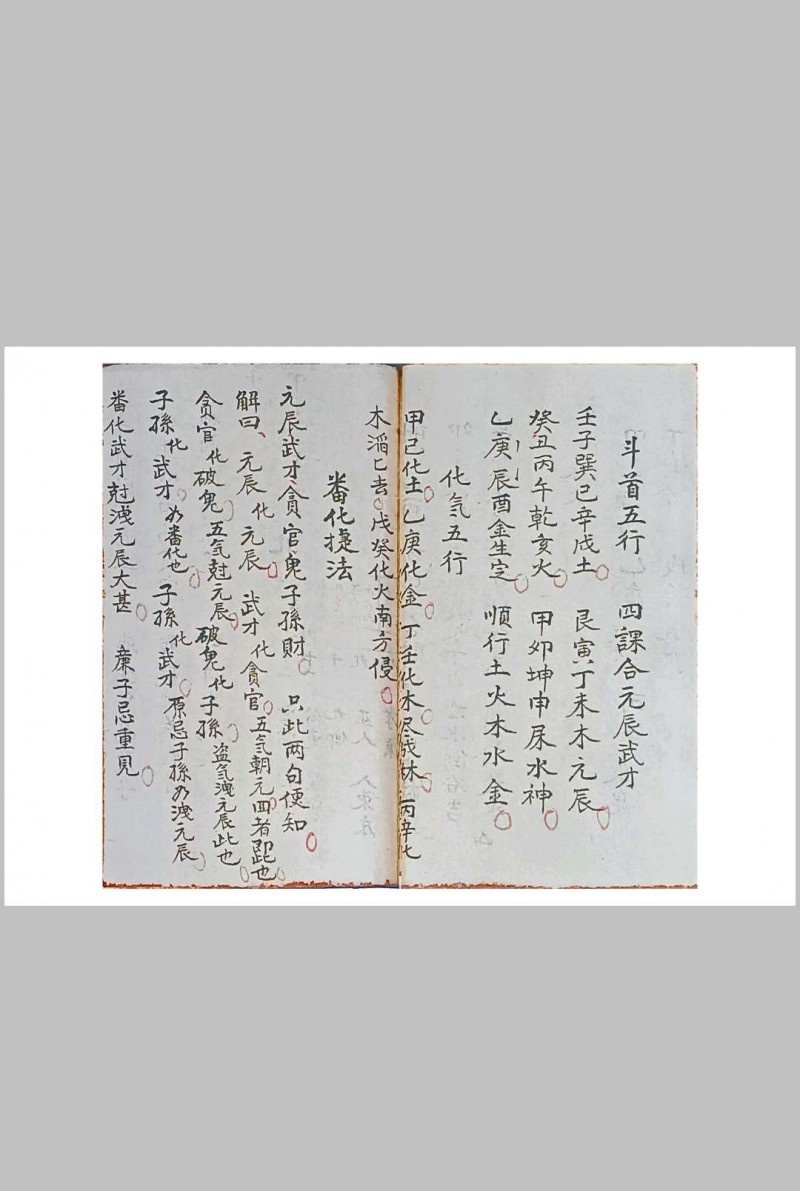 斗首五行 四課合元辰武才
壬子巽巳辛戌土 艮寅丁未木元辰
癸丑丙午乾亥火 甲卯坤申水神
乙庚辰酉金生定 順行土火木水金
化気五行
甲己化土 乙庚化金 丁壬化木尽成林 丙辛化
木滔匕去 戊癸化火南方侵
畨化捷法
元辰武才貪官鬼子孫財 只此两句便知
解曰、元辰化元辰 武才化貪官 五気朝元四者即也
貪官化破鬼 五気尅元辰 破鬼化子孫 盗気洩元辰此也
子孫化武才 为畨化也 子孫化武才 原忌子孫为洩元辰
畨化武才尅洩元辰大甚 亷子忌重見